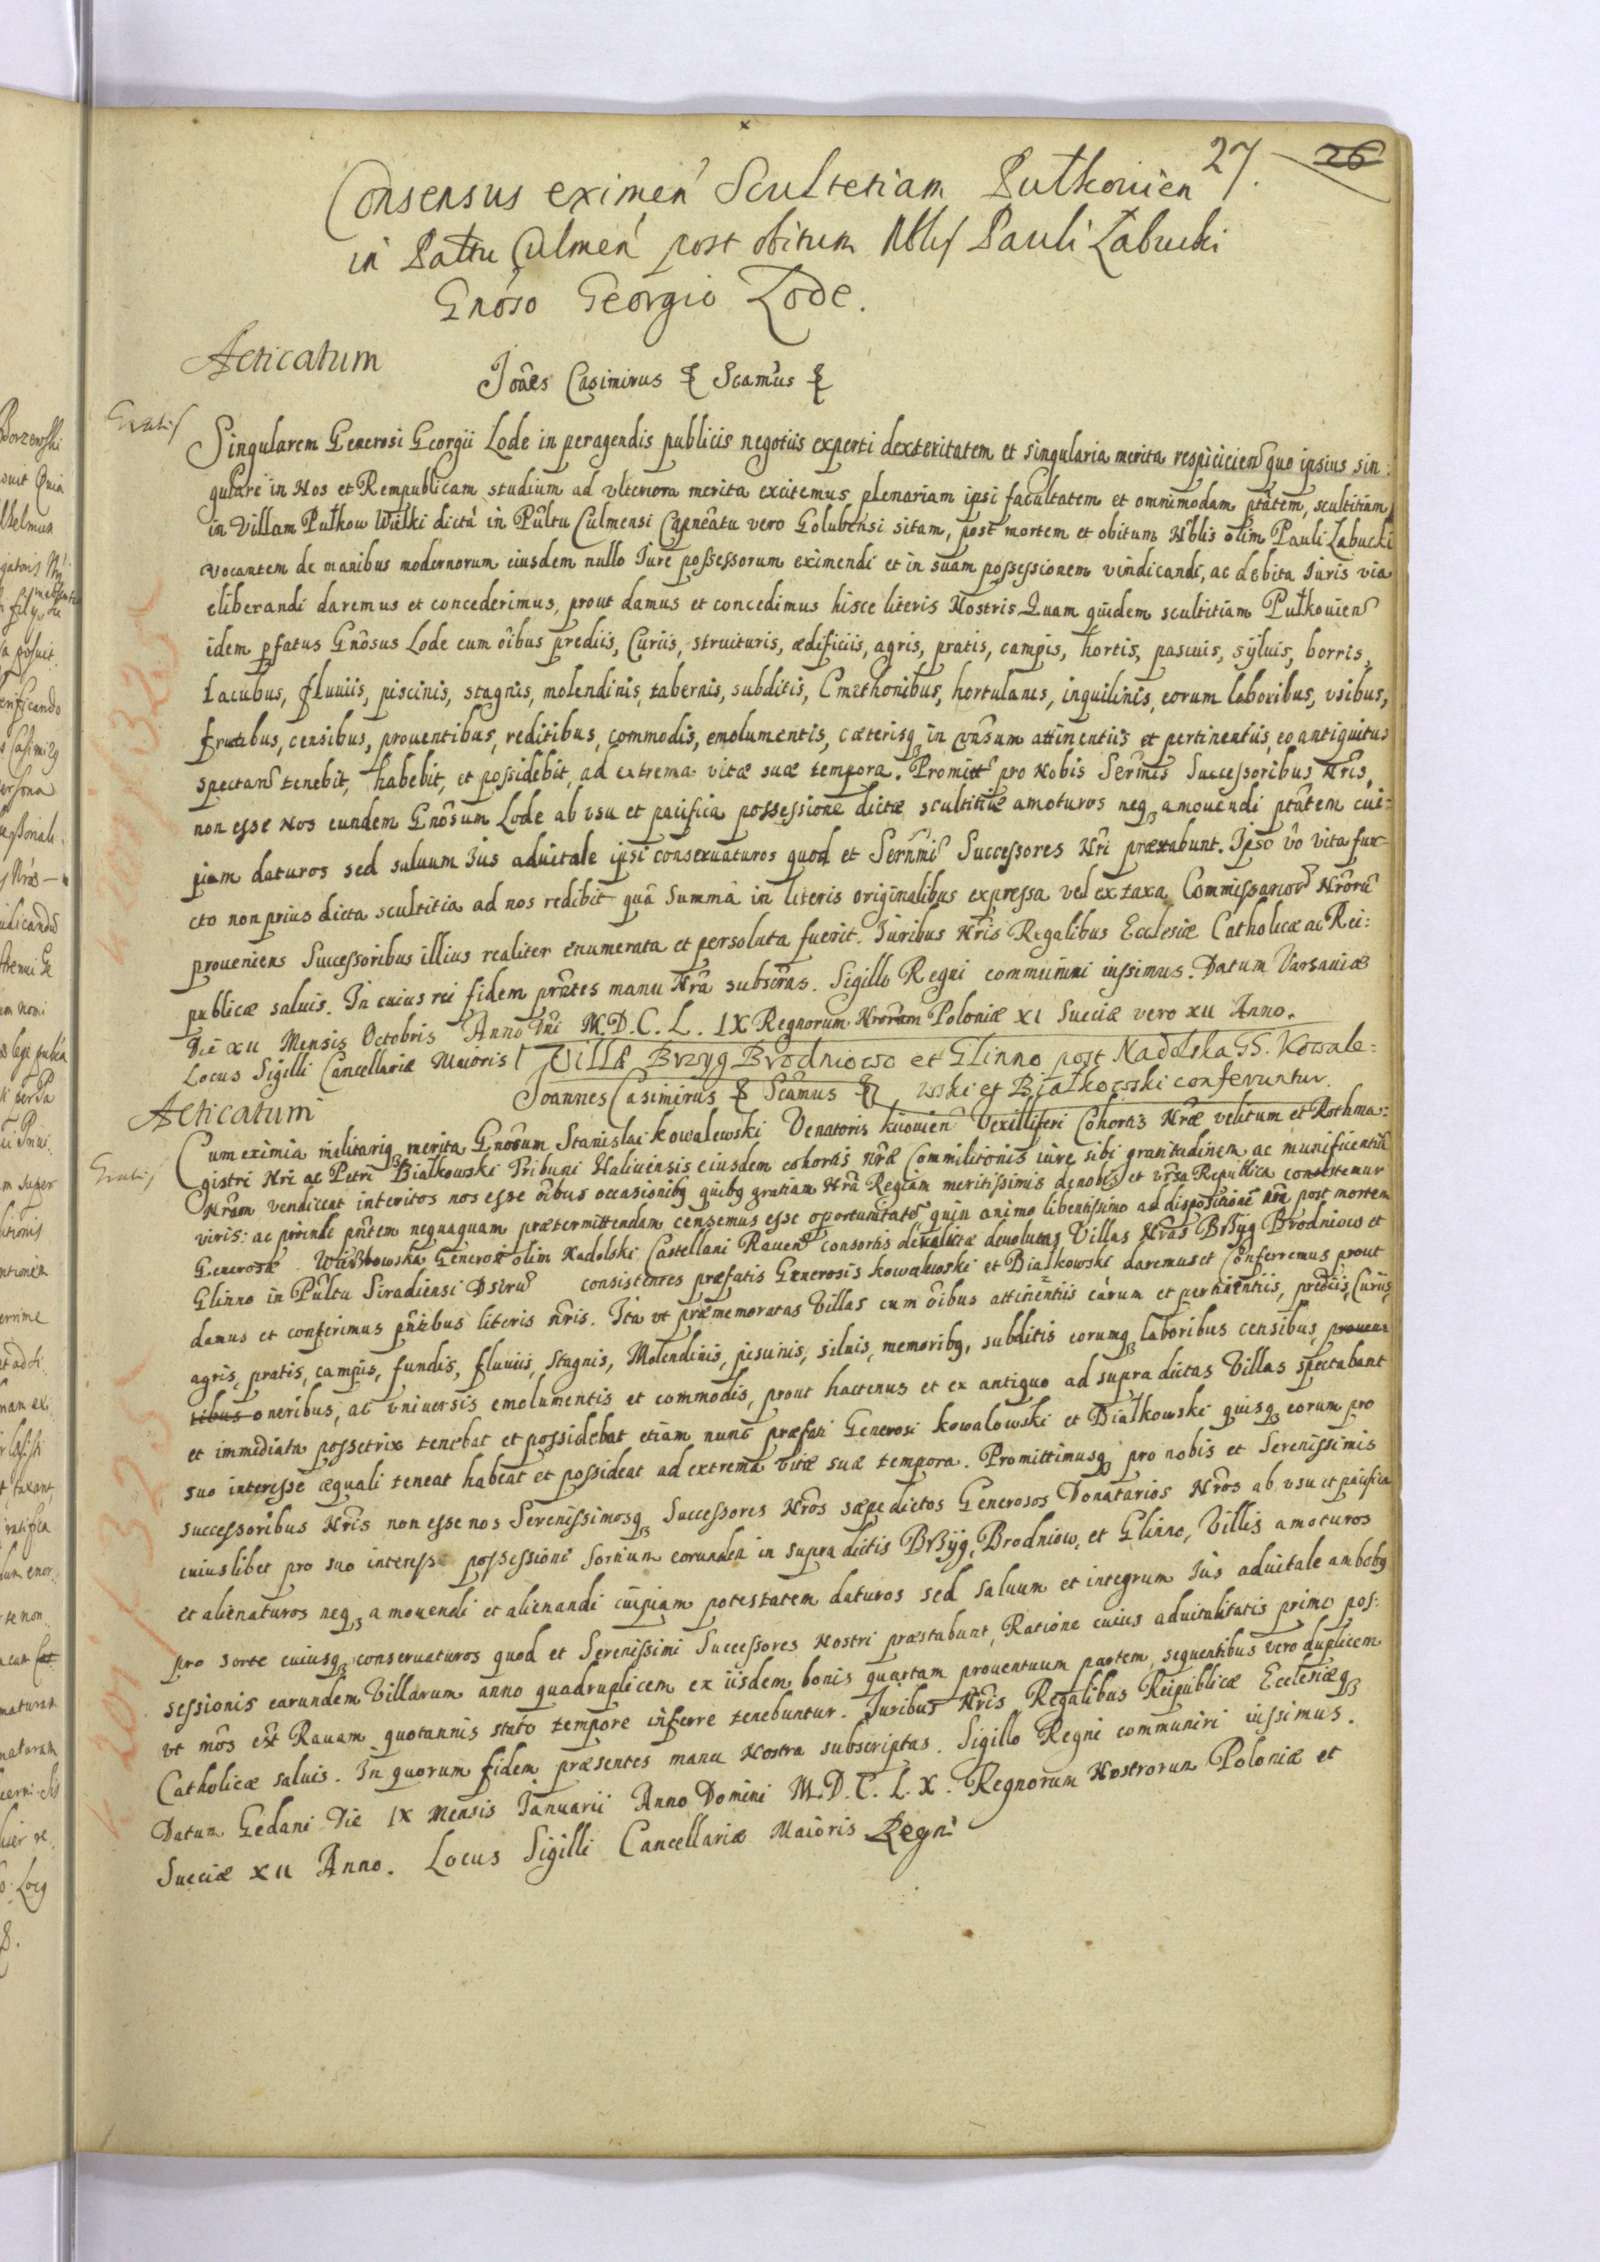 27. 26
Consensus eximen Scultetiam Pułkouien
in Pałtu Culmen post obitum Nblis Pauli Zabucki
Gnoso Georgio Lode.
Acticatum
Joães Casimirus & Seamus &
Gratis
Singularem Generosi Georgii Lode in peragendis publicis negotiis experti dexteritatem et singularia merita respicien quo ipsius sin:
gulare in Nos et Rempublicam studium ad vlteriora merita excitemus plenariam ipsi facultatem et omnimodam ptãtem, scultitiam
in Villam Pułkow Wulki dictã in Pûltu Culmensi Capneâtu vero Golubensi sitam, post mortem et obitum Nblis olim Pauli Zabucki
vocantem de manibus modernorum eiusdem nullo Iure possessorum eximendi et in suam possessionem vindicandi, ac debita Iuris via
eliberandi daremus et concederimus, prout damus et concedimus hisce literis Nostris. Quam quidem scultitiam Pułkouien
idem pfatus Gnôsus Lode cum ôibus prediis, Curiis, structuris, ædificiis, agris, pratis, campis, hortis, pascuis, syluis, borris,
Lacubus, fluuiis, piscinis, stagnis, molendinis, tabernis, subditis, Cmethonibus, hortulanis, inquilinis, eorum laboribus, vsibus,
fructibus, censibus, prouentibus, reditibus, commodis, emolumentis, cæterisq in vnûsum attinentiis et pertinentiis, eo antiquitus
spectan tenebit, habebit, et possidebit, ad extrema vitæ suæ tempora. Promitt pro Nobis Sermis Successoribus Nris,
non esse Nos eundem Gnôsum Lode ab vsu et pacifica possessione dictæ scultitiæ amoturos neq amouendi ptãtem cui:
piam daturos sed saluum Ius aduitale ipsi conseruaturos quod et Sernmi Successores Nri præstabunt. Ipso vô vita fun
cto non prius dicta scultitia ad nos redibit quã Summa in literis originalibus expressa vel ex taxa Commissarior Nrorũ
proueniens Successoribus illius realiter enumerata et persoluta fuerit. Iuribus Nris Regalibus Ecclesiæ Catholicæ ac Rei:
publicæ saluis. In cuius rei fidem prñtes manu Nrã subscras. Sigillo Regni communiri iussimus. Datum Varsauiæ
Die XII Mensis Octobris Anno Dni M.D.C.L.IX Regnorum Nrorum Poloniæ XI Sueciæ vero XII Anno.
Locus Sigilli Cancellariæ Maioris / Villæ Brzyg Brodniowo et Glinno post Nadolska GG. Kowale:
Joannes Casimirus & Seamus & wski et Białkowski conferuntur.
Acticatum
Gratis
Cum eximia militariq merita Gnosum Stanislai Kowalewski Venatoris Kiiouien Vexilliferi Cohortis Nræ velitum et Rothma:
gistri Nri ac Petri Białkowski Tribuni Haliuensis eiusdem cohortis nræ Commilitonis iure sibi gratitudinem ac munificentiã
Nrãm vendicent inveritos nos esse ôibus occasionibq quibq gratiam Nrã Regiam meritissimis de nobis et vrsa Republica contestemur
viris: ac proinde pñtem nequaquam prætermittendam censemus esse oportunitatẽ quin animo libentissimo ad dispositionẽ nrã post mortem
Generosæ Wierzbowska Generosi olim Nadolski Castellani Rauen consortis deralictæ deuolutas Villas Nras Brzyg Brodniow et
Glinno in Pûltu Siradiensi Dstrũ consistentes præfatis Generosis Kowalewski et Białkowski daremus et Conferremus prout
damus et conferimus pñtibus literis nris. Ita vt præmemoratas Villas cum ôibus attinentiis earum et pertinentiis, prediis, Curiis,
agris, pratis, campis, fundis, fluuiis, stagnis, Molendinis, piscinis, siluis, memoribq, subditis eorumq laboribus censibus, prouen
tibus oneribus, ac vniuersis emolumentis et commodis, prout hactenus et ex antiquo ad supra dictas Villas spectabant
et immediata possetrix tenebat et possidebat etiam nunc præfati Generosi Kowalowski et Białkowski quisq eorum pro
suo interesse æquali teneat habeat et possideat ad extrema vitæ suæ tempora. Promittimusq pro nobis et Serenissimis
successoribus Nris non esse nos Serenissimosq Successores Nros sæpe dictos Generosos Donatarios Nros ab vsu et pacifica
cuiuslibet pro suo interesse possessione sortium eorundem in supra dictis Brzyg, Brodniow, et Glinno, Villis amoturos
et alienaturos neq amouendi et alienandi cuipiam potestatem daturos sed saluum et integrum Ius aduitale ambobq
pro sorte cuiusq conseruaturos quod et Serenissimi Successores Nostri præstabunt, Ratione cuius aduitalitatis primo pos:
sessionis earundem Villarum anno quadruplicem ex iisdem bonis quartam prouentuum partem sequentibus vero duplicem
vt môs est Rauam quotannis stato tempore inferre tenebuntur. Iuribus Nris Regalibus Reipublicæ Ecclesiæq
Catholicæ saluis. In quorum fidem præsentes manu Nostra subscriptas. Sigillo Regni communiri iussimus.
Datum Gedani Die IX Mensis Ianuarii Anno Domini M.D.C.L.X. Regnorum Nostrorum Poloniæ et
Sueciæ XII Anno. Locus Sigilli Cancellariæ Maioris Regni